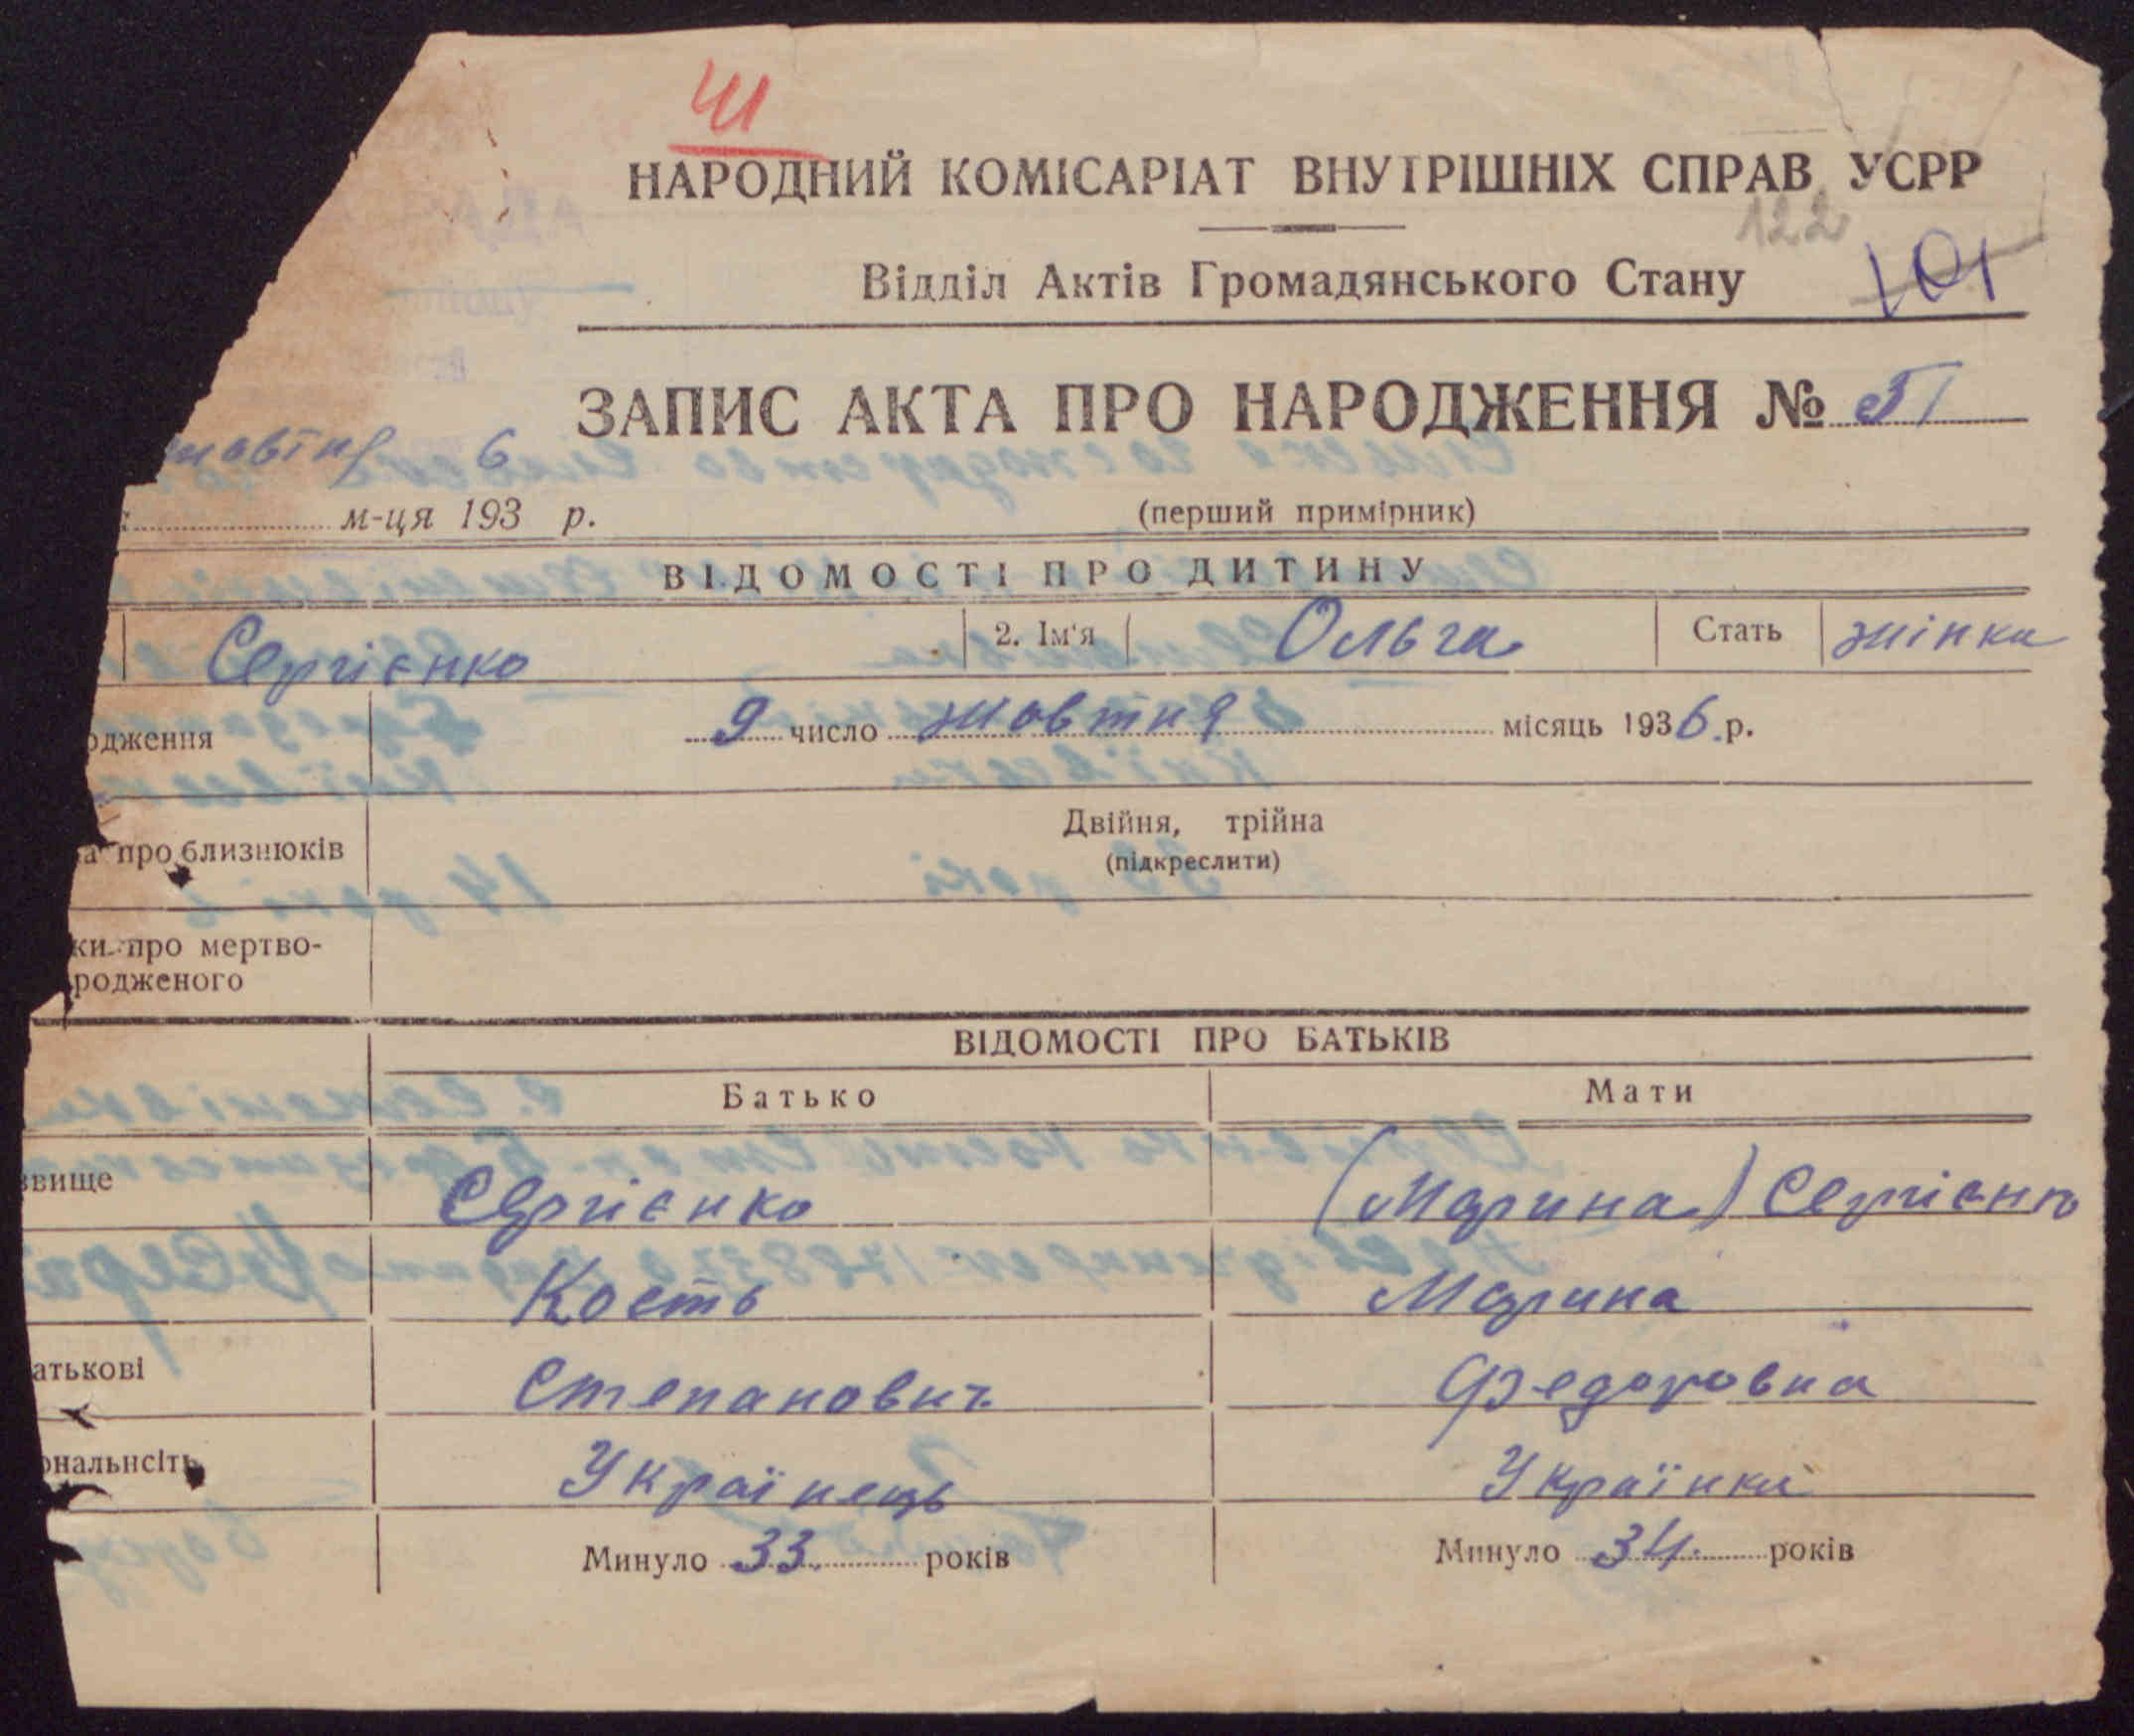 Ш
НАРОДНИЙ КОМІСАРІАТ ВНУТРІШНІХ СПРАВ УСРР
122
101
Відділ Актів Громадянського Стану
ЗАПИС АКТА ПРО НАРОДЖЕННЯ № 51
жовтня 6
м-ця 193 р.
(перший примірник)
ВІДОМОСТІ ПРО ДИТИНУ
Сергієнко 2. Ім'я Ольга Стать жінка
одження 9 число жовтня місяць 1936 р.
а про близнюків Двійня, трійна
(підкреслити)
ки про мертво-
родженого
ВІДОМОСТІ ПРО БАТЬКІВ
Батько Мати
звище Сергієнко (Марина) Сергієнко
Кость Марина
атькові Степанович Федоровна
ональнсіть Українець Українка
Минуло 33 років Минуло 34 років